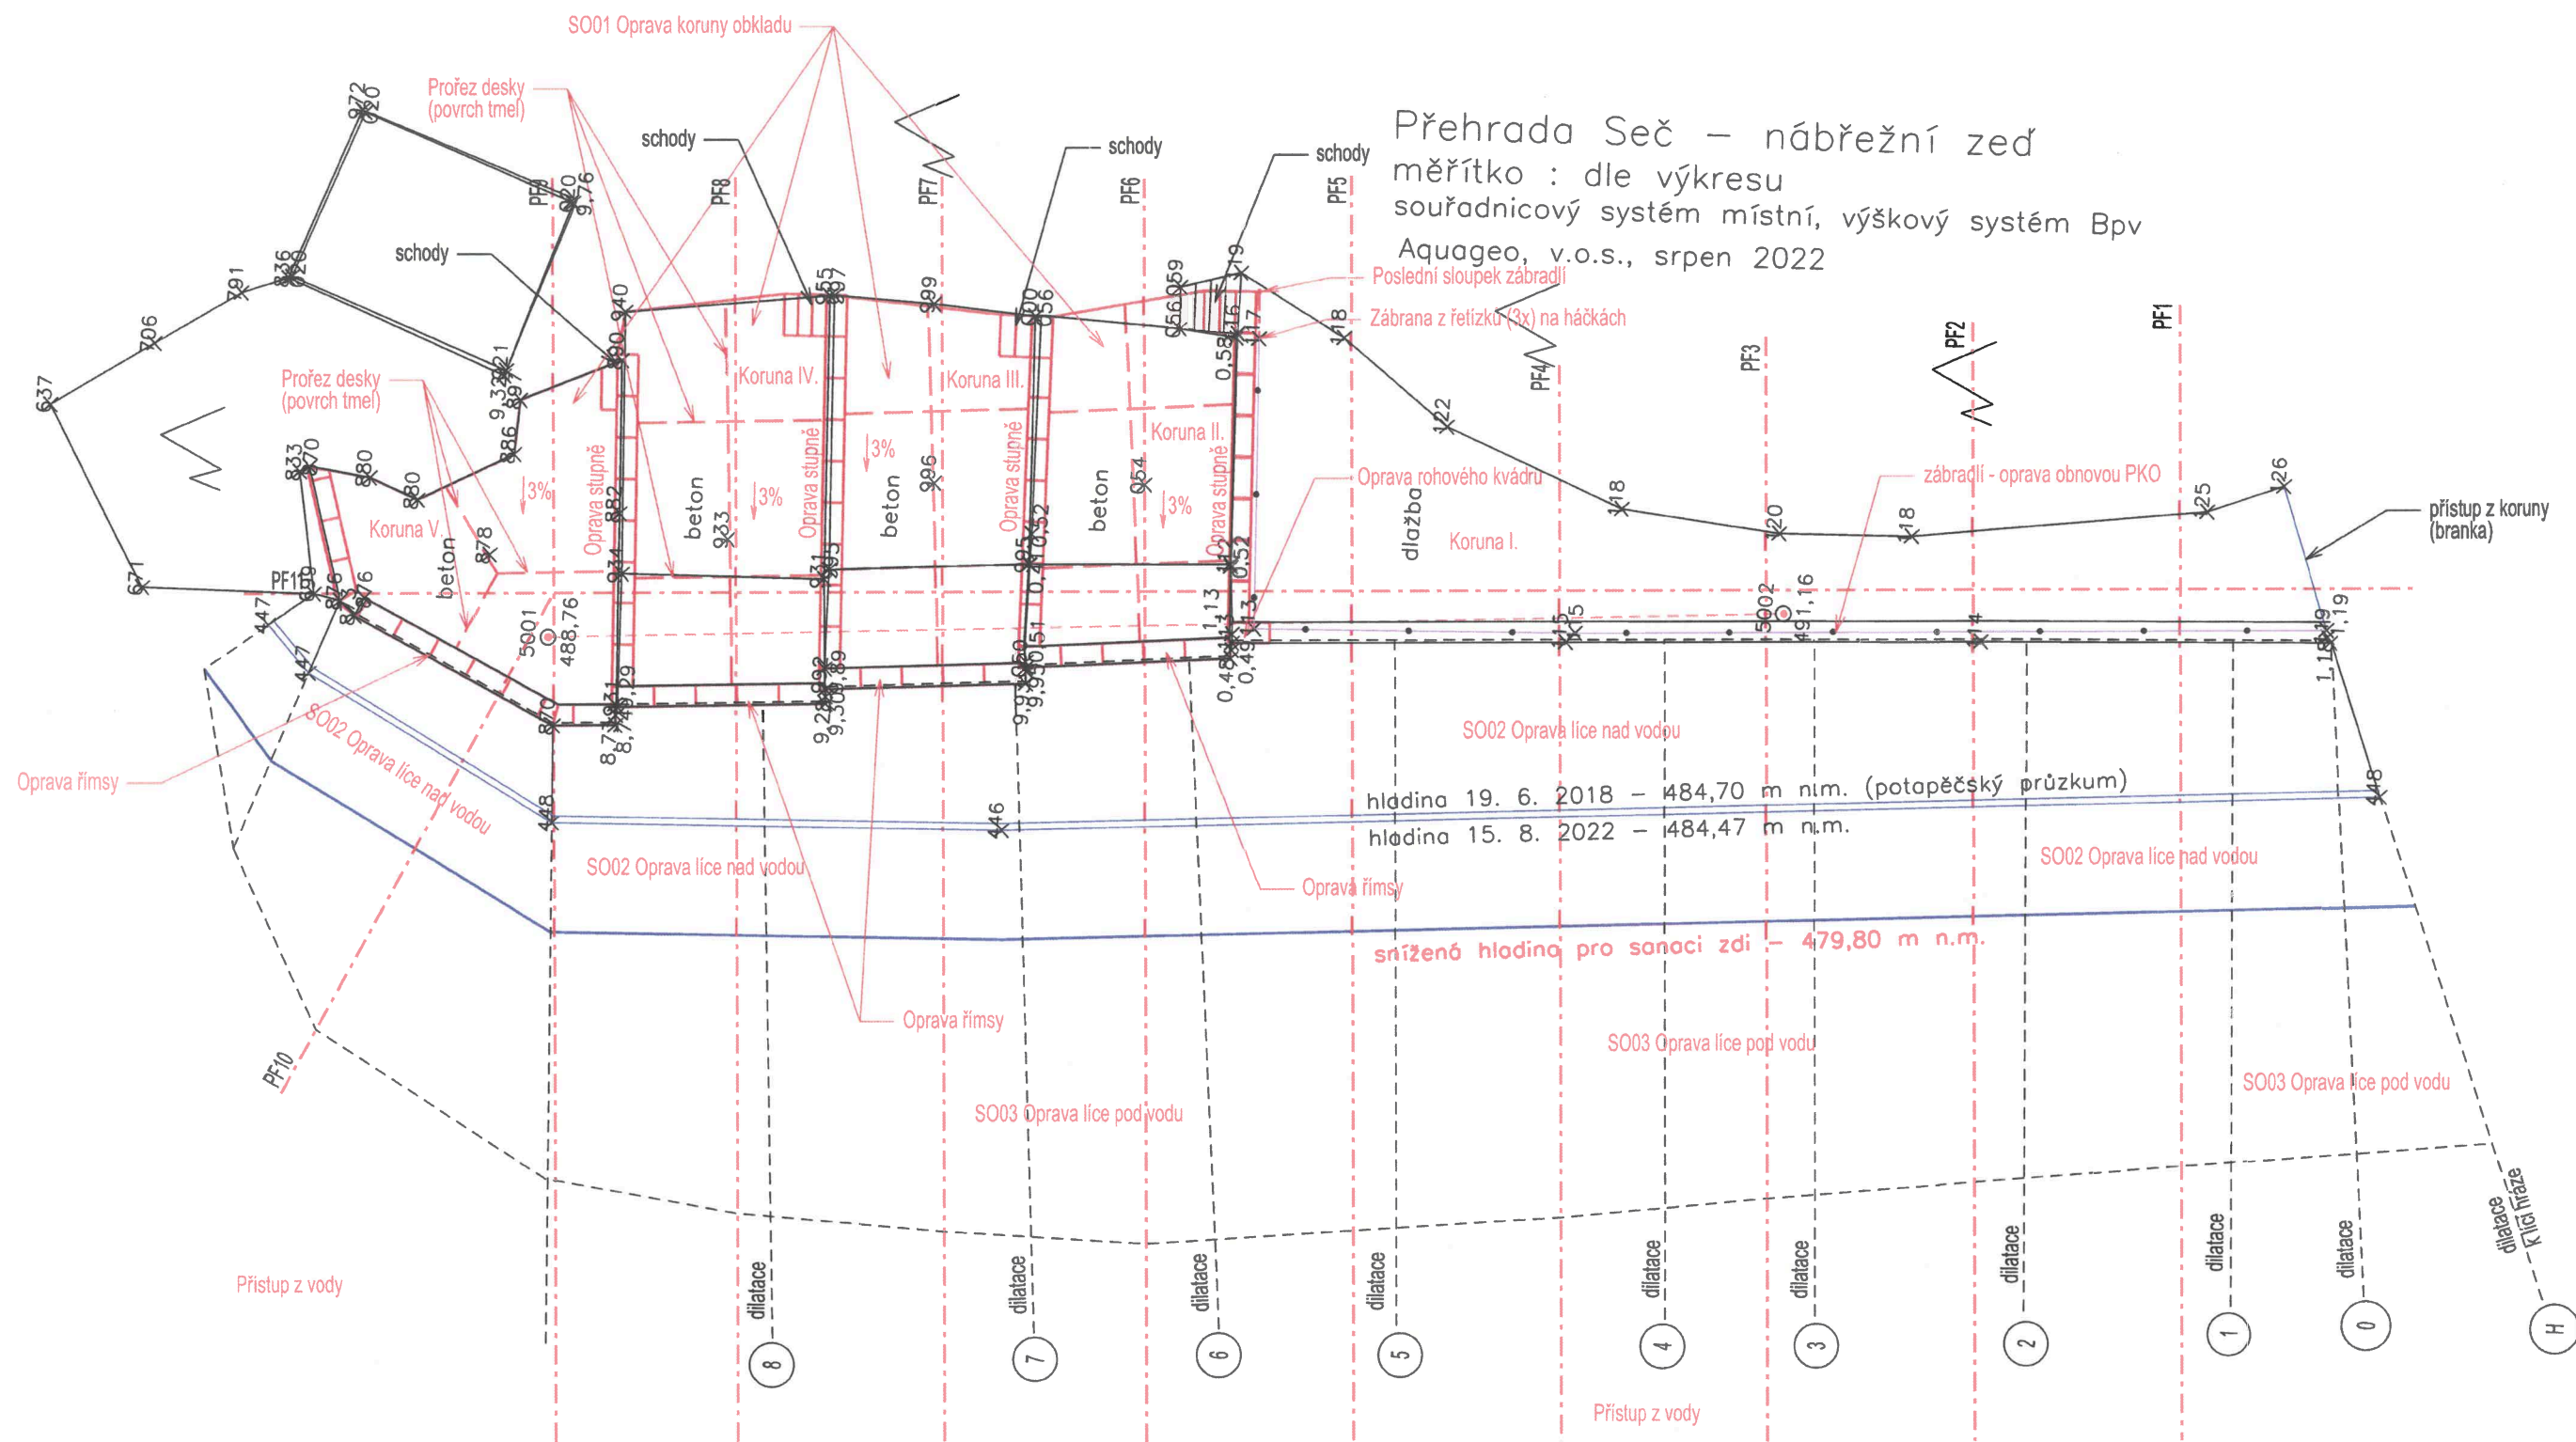 SO01 Oprava koruny obkladu
Prořez desky
(povrch tmel)
schody
schody
schody
schody
Přehrada Seč – nábřežní zeď
měřítko : dle výkresu
souřadnicový systém místní, výškový systém Bpv
Aquageo, v.o.s., srpen 2022
Poslední sloupek zábradlí
Zábrana z řetízku (3x) na háčkách
PF9
PF8
PF7
PF6
PF5
PF4
PF3
PF2
PF1
972
020
020
9,76
836
020
791
706
637
671
940
955
999
059
056
119
118
117
122
118
120
118
125
126
Prořez desky
(povrch tmel)
Koruna IV.
Koruna III.
Koruna II.
Koruna I.
Koruna V.
Oprava stupně
Oprava stupně
Oprava stupně
Oprava stupně
3%
3%
3%
3%
beton
beton
beton
beton
dlažba
897
886
880
880
833
870
878
882
933
996
054
934
931
Oprava rohového kvádru
zábradlí - oprava obnovou PKO
přístup z koruny
(branka)
PF11
447
447
876
5001
488,76
5002
491,16
115
114
1,19
870
448
446
448
Oprava římsy
SO02 Oprava líce nad vodou
SO02 Oprava líce nad vodou
SO02 Oprava líce nad vodou
SO02 Oprava líce nad vodou
hladina 19. 6. 2018 – 484,70 m n.m. (potapěčský průzkum)
hladina 15. 8. 2022 – 484,47 m n.m.
Oprava římsy
snížená hladina pro sanaci zdi – 479,80 m n.m.
Oprava římsy
PF10
SO03 Oprava líce pod vodu
SO03 Oprava líce pod vodu
SO03 Oprava líce pod vodu
Přístup z vody
Přístup z vody
dilatace
dilatace
dilatace
dilatace
dilatace
dilatace
dilatace
dilatace
dilatace
dilatace
k líci hráze
8
7
6
5
4
3
2
1
0
H